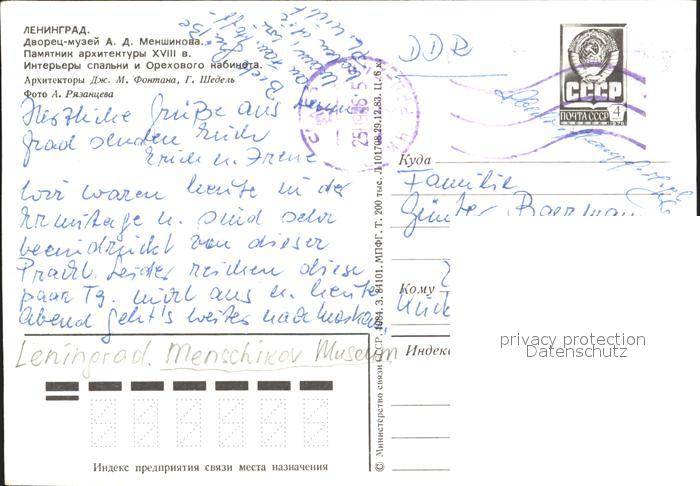 ЛЕНИНГРАД.
Дворец-музей А. Д. Меншикова.
Памятник архитектуры XVIII в.
Интерьеры спальни и Орехового кабинета.
Архитекторы Дж. М. Фонтана, Г. Шедель
Фото А. Рязанцева
Herzliche Grüße aus Lenin-
grad senden Euch
Erich u. Irene
Wir waren heute in der
Ermitage u. sind sehr
beeindruckt von dieser
Pracht. Leider reichen diese
paar Tg. nicht aus u. heute
Abend geht's weiter nach Moskau.
Leningrad. Menschikov Museum
Индекс предприятия связи места назначения
© Министерство связи СССР. 1984. З. 84101. МПФГ. Т. 200 тыс. Л101708.29.12.83. Ц. 6 к.
DDR
СССР
ПОЧТА СССР
4
Куда
Familie
Günter
Кому
Индекс
privacy protection
Datenschutz